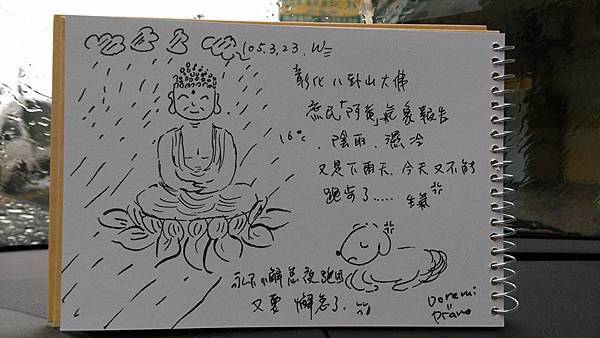 105.3.23. W三
彰化八卦山大佛
庶民「阿黃」氣象報告
16°C
、陰雨、濕冷
又是下雨天、今天又不能
跑步了..... 生氣
永不懈怠夜跑團
又要懈怠了.
Doremi
Piano